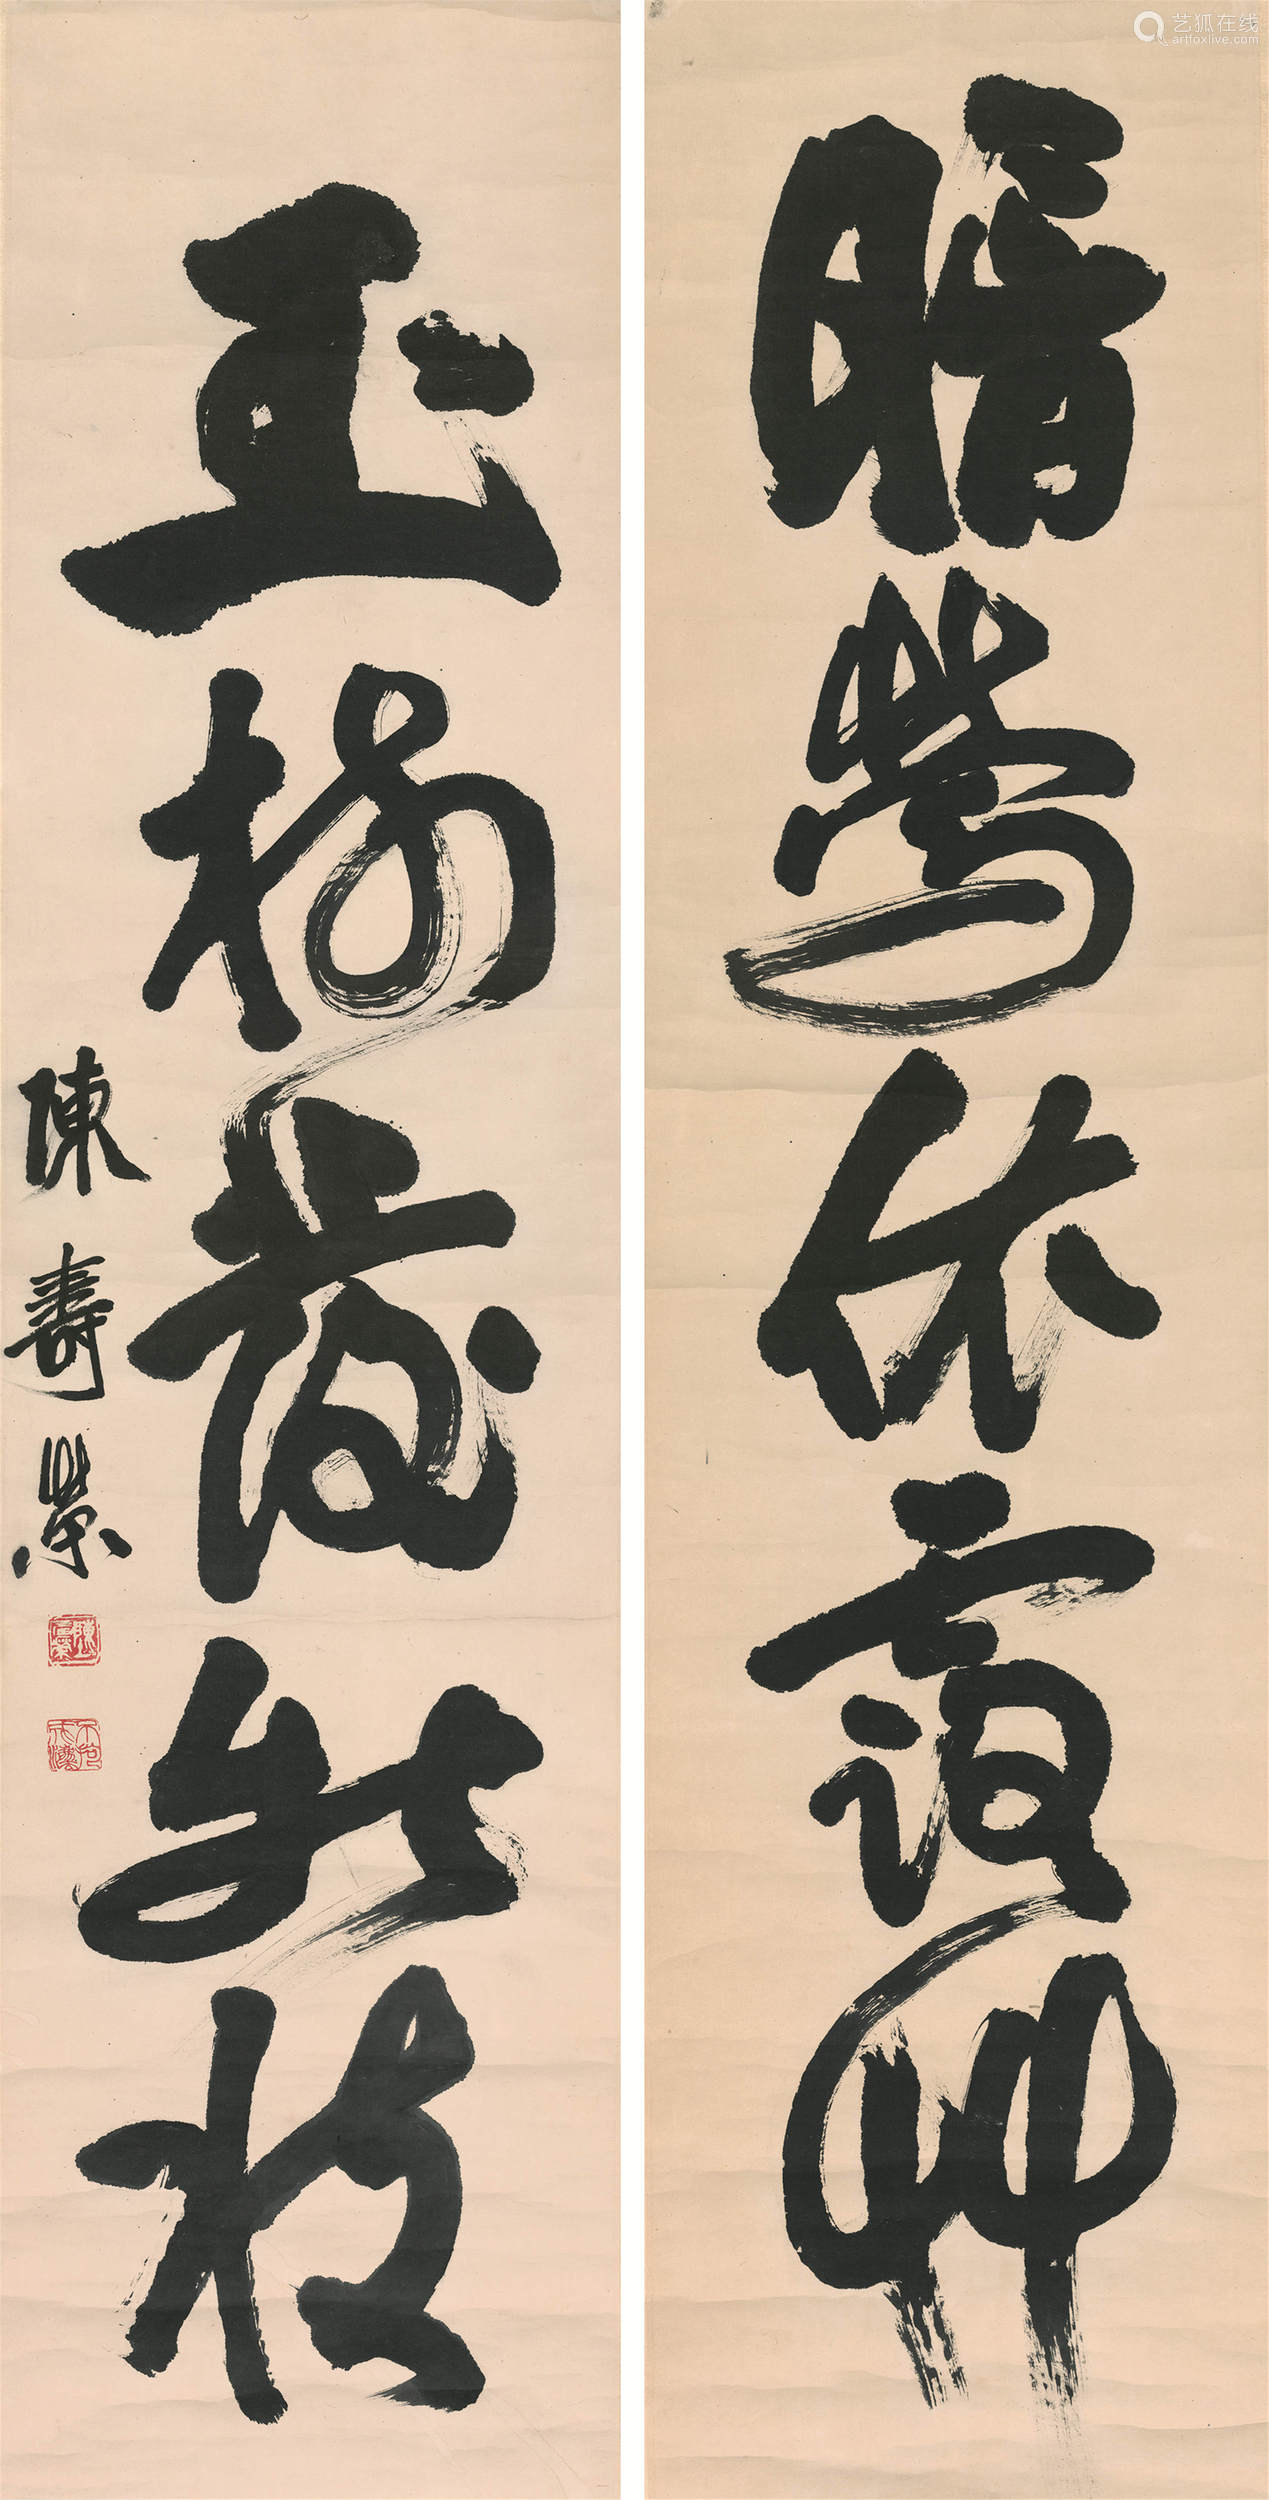 暗鶯依露艸
玉樹發新枝
陳壽榮
艺狐在线
artfoxlive.com